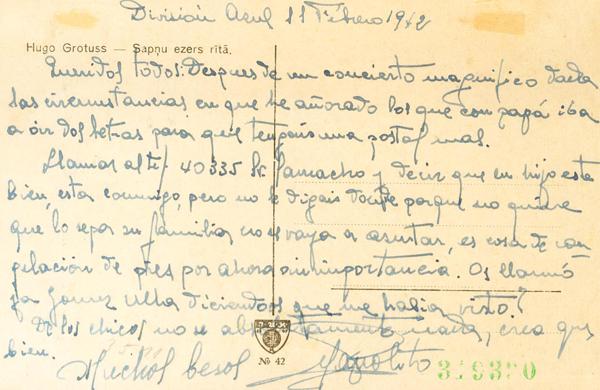 División Azul 11 Febrero 1942
Hugo Grotuss — Sapņu ezers rītā.
Queridos todos: Despues de un concierto magnifico dadas
las circunstancias en que he añorado los que con papá iba
a oir dos letras para que tengais una postal mas.
Llamar al tef 40335 Sr. Camacho y decir que su hijo esta
bien, esta conmigo, pero no le digais donde porque no quiere
que lo sepa su familia no se vaya a asustar, es cosa de con
gelación de pies por ahora sin importancia. Os llamó
ya Gomez Ulha diciendoos que me habia visto?
De los chicos no se absolutamente nada, creo que
bien.
Muchos besos
№ 42
319380